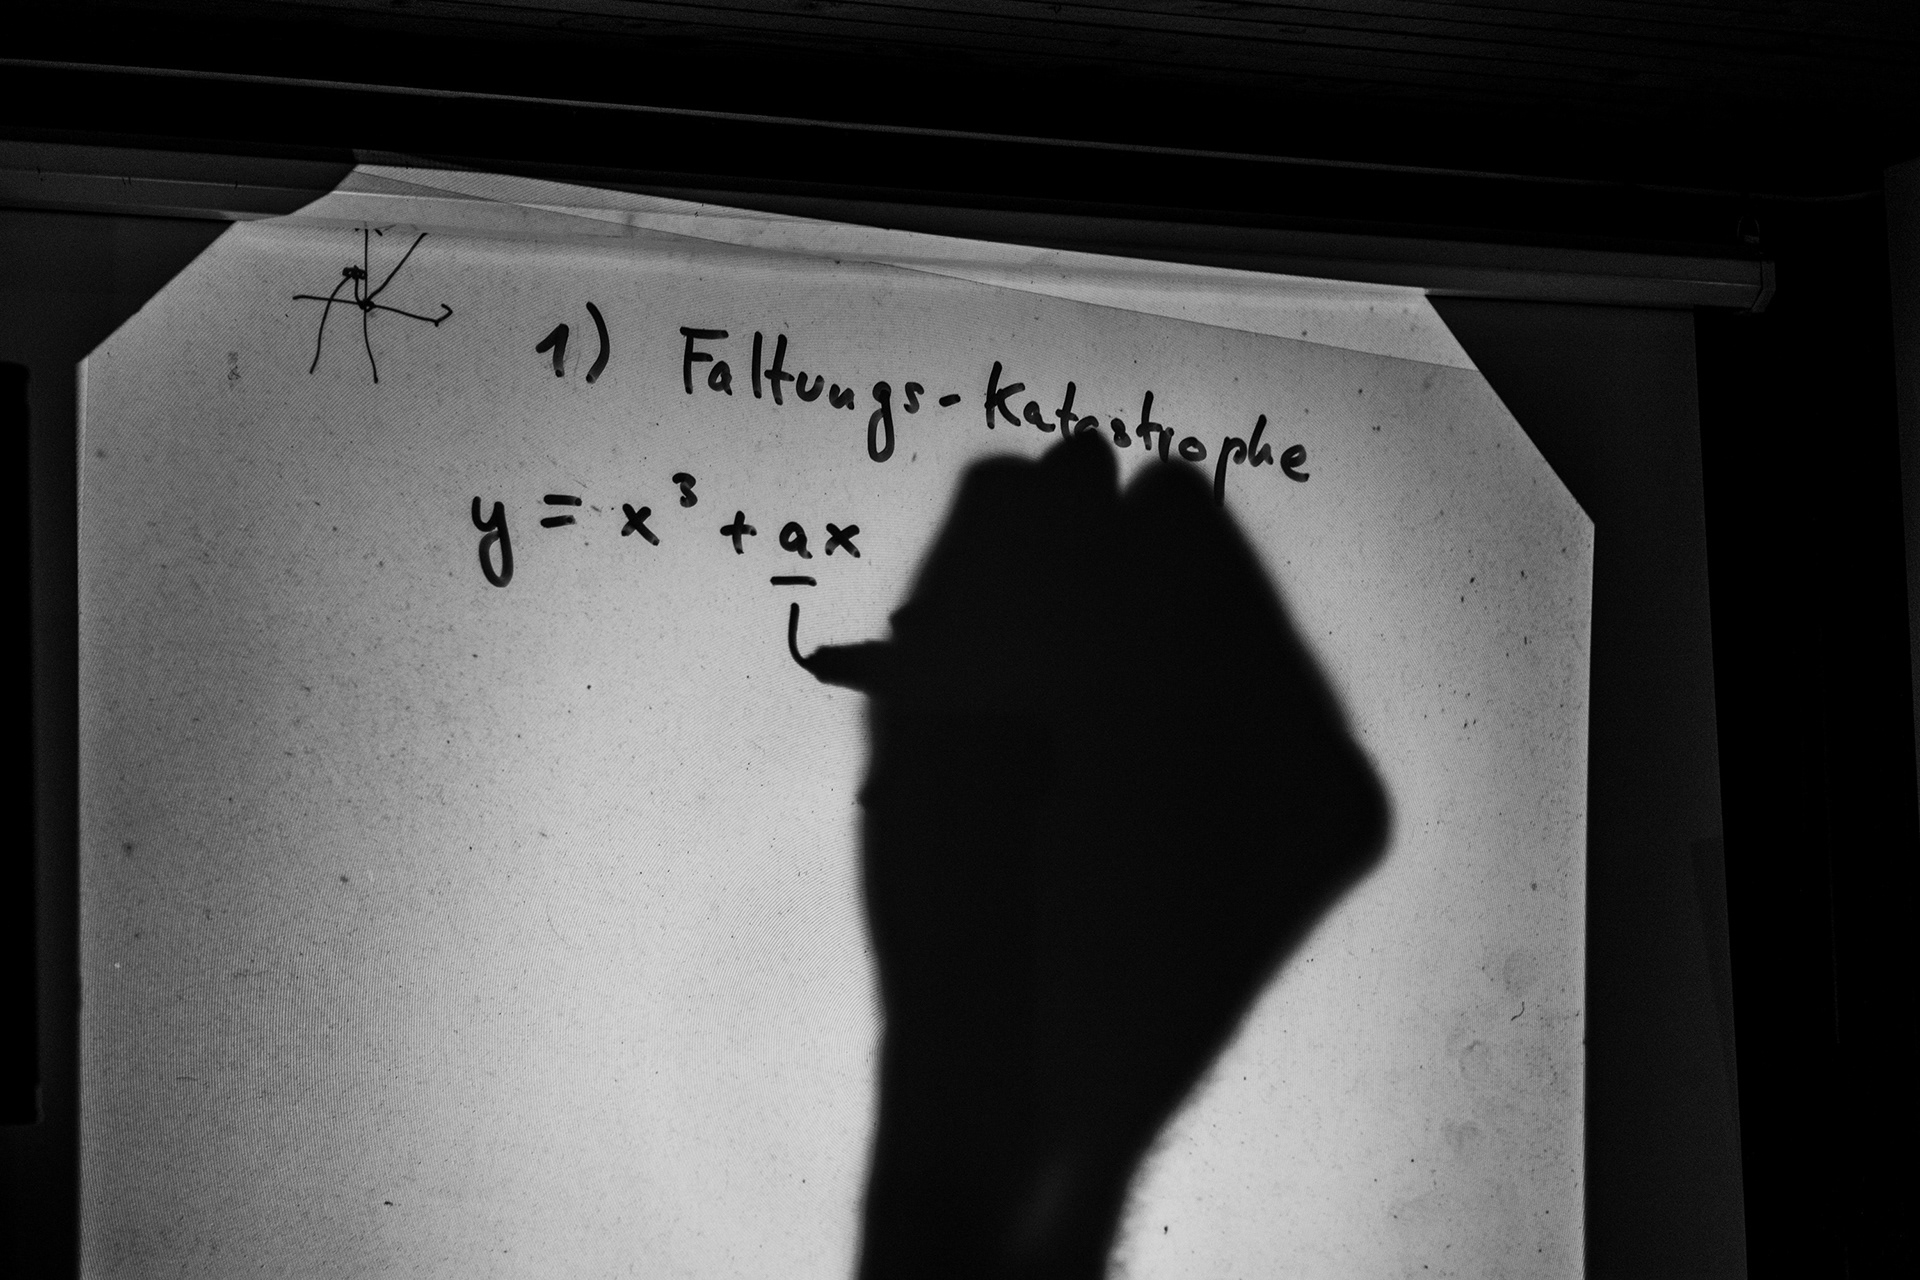 1) Faltungs-Katastrophe
y = x³ + ax